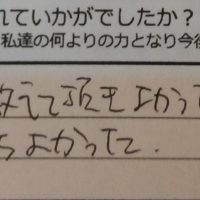 れていかがでしたか？
私達の何よりの力となり今後
教えて頂き よかった
ちよかった.